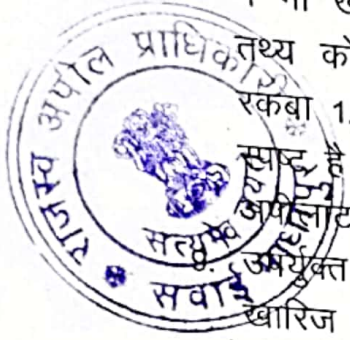 राजस्व अपील प्राधिकारी
सत्यमेव
सवाई
तथ्य को
रकबा 1.
स्पष्ट है
अपीलांट
उपर्युक्त
खारिज